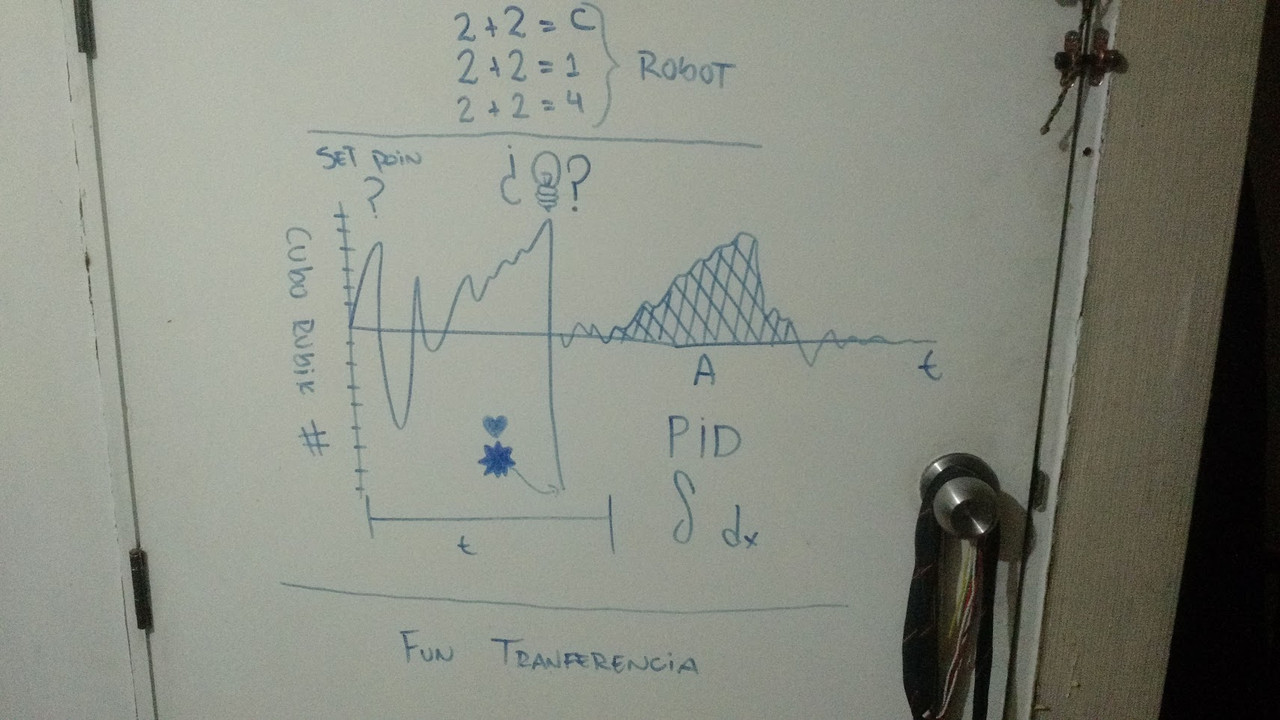 2 + 2 = C
2 + 2 = 1
2 + 2 = 4
ROBOT
SET POIN
?
¿ ?
CUBO RUBIK #
A
t
PiD
∫ dx
t
FUN TRANFERENCIA